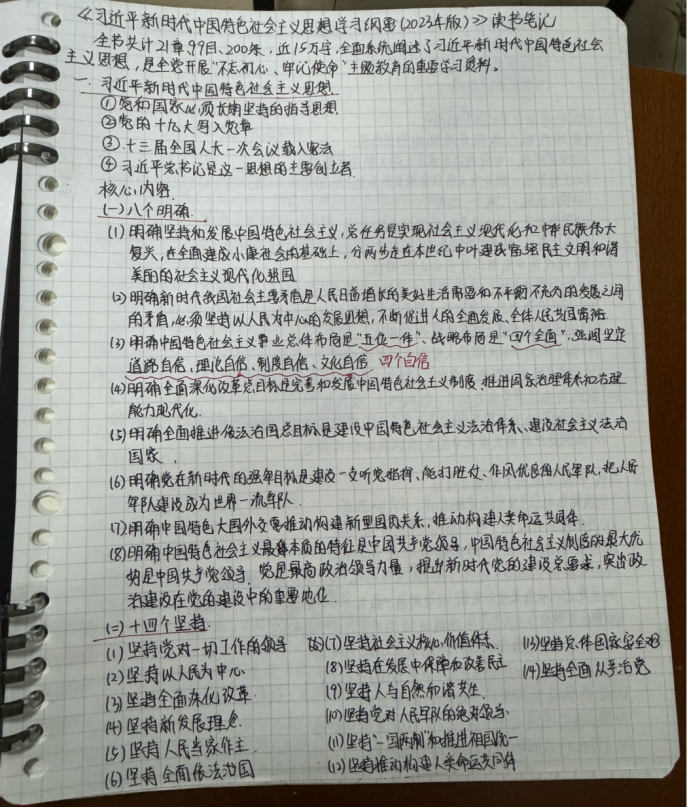 《习近平新时代中国特色社会主义思想学习纲要(2023年版)》读书笔记
全书共计21章99目、200条,近15万字,全面系统阐述了习近平新时代中国特色社会
主义思想,是全党开展“不忘初心、牢记使命”主题教育的重要学习资料。
一、习近平新时代中国特色社会主义思想
①党和国家必须长期坚持的指导思想
②党的十九大写入党章
③十三届全国人大一次会议载入宪法
④习近平总书记是这一思想的主要创立者.
核心内容
(一)八个明确.
(1)明确坚持和发展中国特色社会主义,总任务是实现社会主义现代化和中华民族伟大
复兴,在全面建成小康社会的基础上,分两步走在本世纪中叶建成富强民主文明和谐
美丽的社会主义现代化强国
(2)明确新时代我国社会主要矛盾是人民日益增长的美好生活需要和不平衡不充分的发展之间
的矛盾,必须坚持以人民为中心的发展思想,不断促进人的全面发展、全体人民共同富裕
(3)明确中国特色社会主义事业总体布局是“五位一体”、战略布局是“四个全面”,强调坚定
道路自信、理论自信、制度自信、文化自信 四个自信
(4)明确全面深化改革总目标是完善和发展中国特色社会主义制度、推进国家治理体系和治理
能力现代化.
(5)明确全面推进依法治国总目标是建设中国特色社会主义法治体系、建设社会主义法治
国家.
(6)明确党在新时代的强军目标是建设一支听党指挥、能打胜仗、作风优良的人民军队,把人民
军队建设成为世界一流军队
(7)明确中国特色大国外交要推动构建新型国际关系,推动构建人类命运共同体.
(8)明确中国特色社会主义最本质的特征是中国共产党领导,中国特色社会主义制度的最大优
势是中国共产党领导.党是最高政治领导力量,提出新时代党的建设总要求,突出政
治建设在党的建设中的重要地位.
(二)十四个坚持.
(1)坚持党对一切工作的领导
(2)坚持以人民为中心
(3)坚持全面深化改革.
(4)坚持新发展理念.
(5)坚持人民当家作主.
(6)坚持全面依法治国
(7)坚持社会主义核心价值体系.
(8)坚持在发展中保障和改善民生
(9)坚持人与自然和谐共生.
(10)坚持党对人民军队的绝对领导.
(11)坚持“一国两制”和推进祖国统一
(12)坚持推动构建人类命运共同体
(13)坚持总体国家安全观
(14)坚持全面从严治党